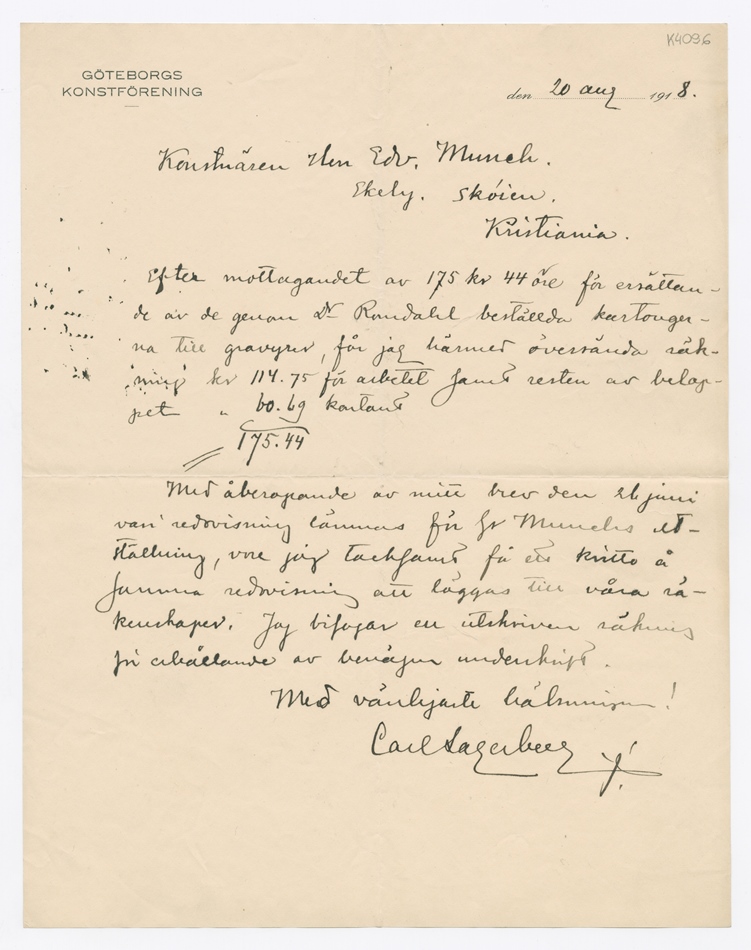 K4096
GÖTEBORGS
KONSTFÖRENING
den 20 aug 1918.
Konstnären Herr Edv. Munch.
Ekely. Sköien.
Kristiania.
Efter mottagandet av 175 kr 44 öre för ersättan-
de av de genom Dr Romdahl beställda kartonger-
na till gravyrer, får jag härmed översända räk-
ning kr 114.75 för arbetet samt resten av belop-
pet " 60.69 kontant
175.44
Med åberopande av mitt brev den 26 juni
vari redovisning lämnas för Hr Munchs ut-
ställning, vore jag tacksam få ett kvitto å
samma redovisning att läggas till våra rä-
kenskaper. Jag bifogar en utskriven räkning
för erhållande av benägen underskrift.
Med vänligaste hälsningar!
Carl Lagerberg